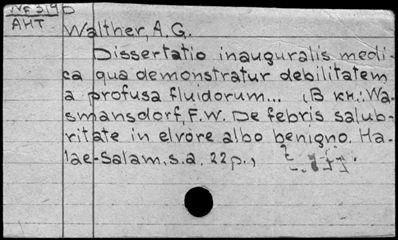 АНТ
Walther, A.G.
Dissertatio inauguralis medi-
ca qua demonstratur debilitatem
a profusa fluidorum... (В кн.: Wa-
smansdorf, F.W. De febris salub-
ritate in elvore albo benigno. Ha-
lae-Salam, s.a. 22p.,